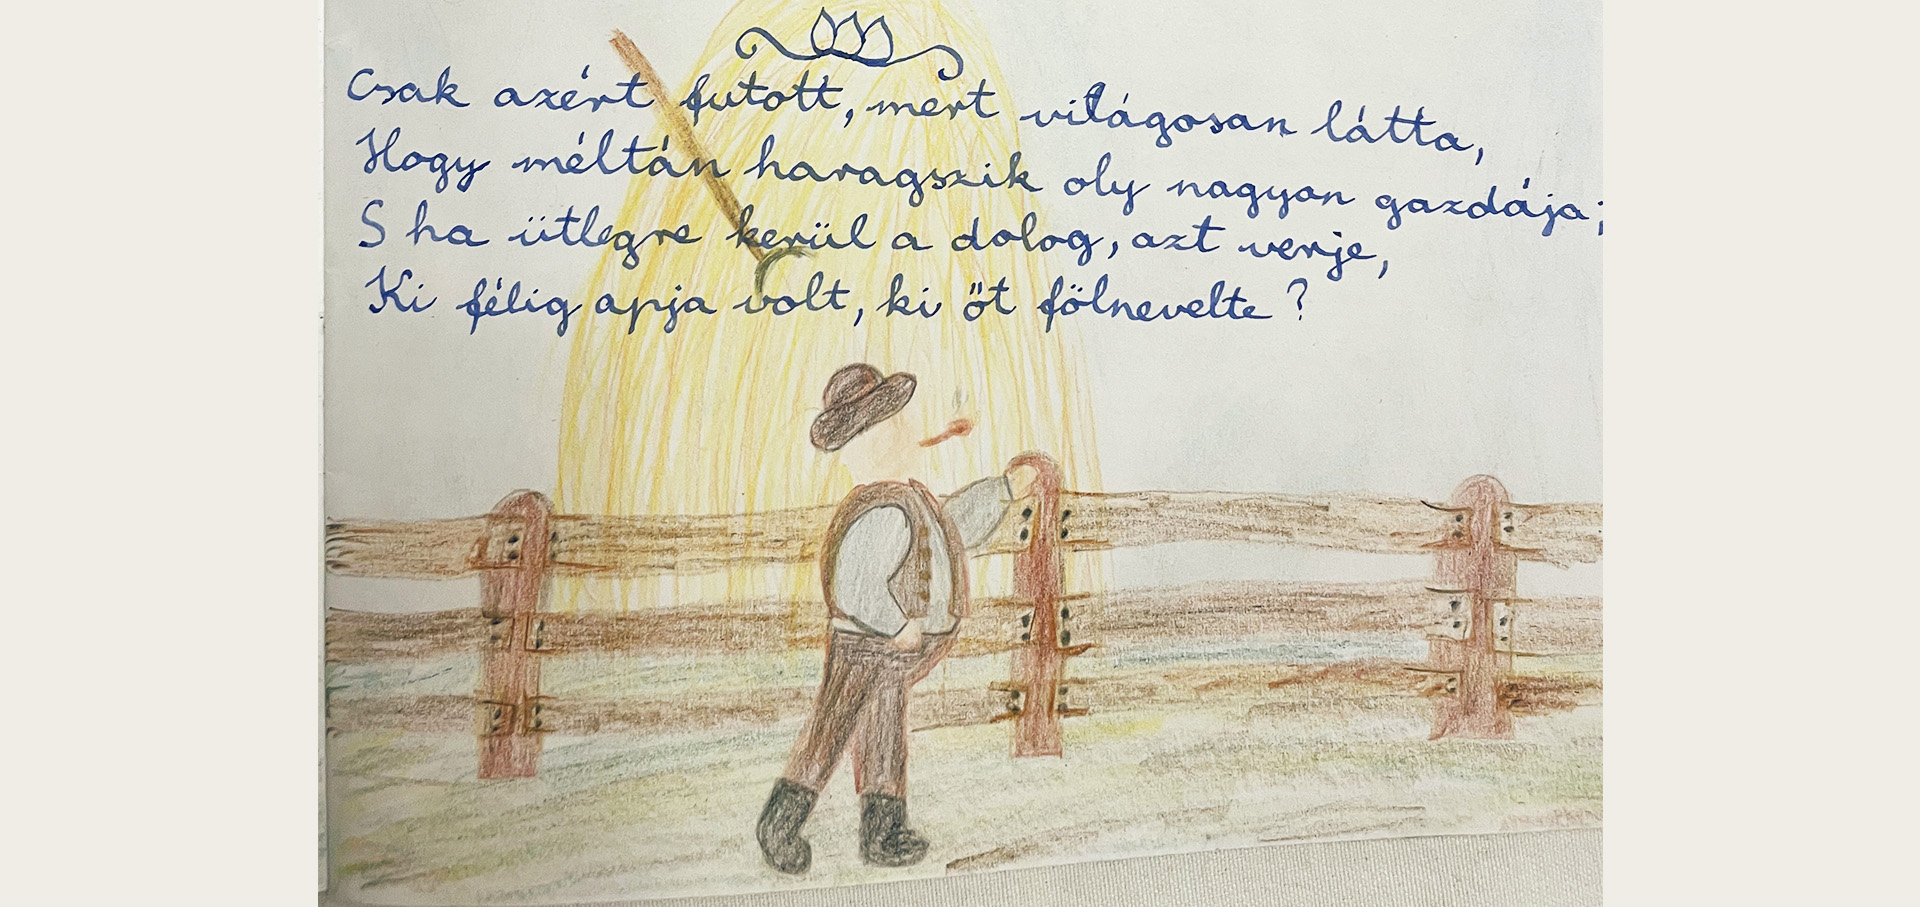 Csak azért futott, mert világosan látta,
Hogy méltán haragszik oly nagyon gazdája;
S ha ütlegre kerül a dolog, azt verje,
Ki félig apja volt, ki őt fölnevelte?